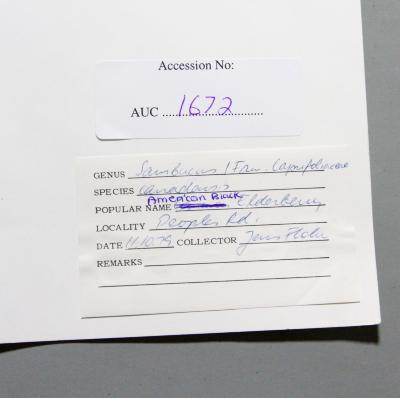 Accession No:
AUC 1672
GENUS Sambucus / Fam. Caprifoliaceae
SPECIES canadensis
American Black
POPULAR NAME Elderberry
LOCALITY Peoples Rd.
DATE 11.10.79 COLLECTOR Jens
REMARKS